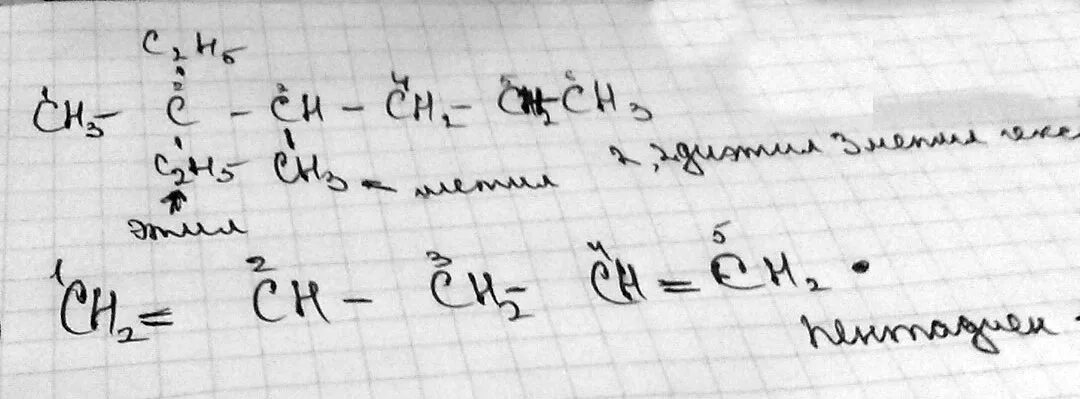 C₂H₅
¹CH₃ – ²C – ³CH – ⁴CH₂ – ⁵CH₂ – ⁶CH₃
C₂H₅ CH₃ – метил 2,2диэтил 3метил гекс
этил
¹CH₂ = ²CH – ³CH₂ – ⁴CH = ⁵CH₂ •
пентадиен -